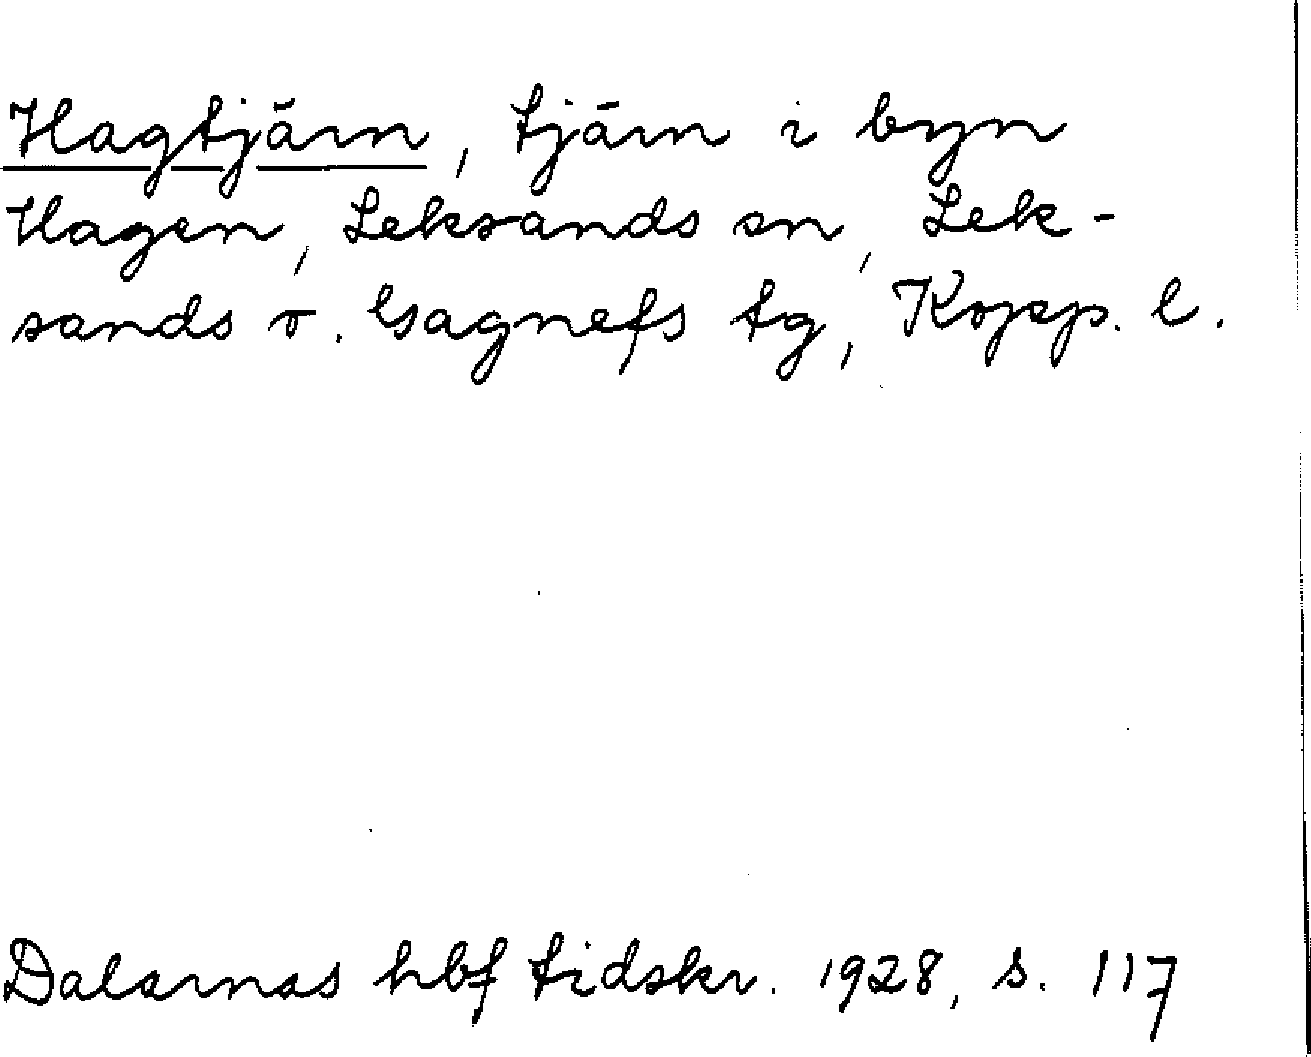 Hagtjärn, tjärn i byn
Hagen, Leksands sn, Lek-
sands o. Gagnefs tg, Kopp. l.
Dalarnas hbf tidskr. 1928, s. 117